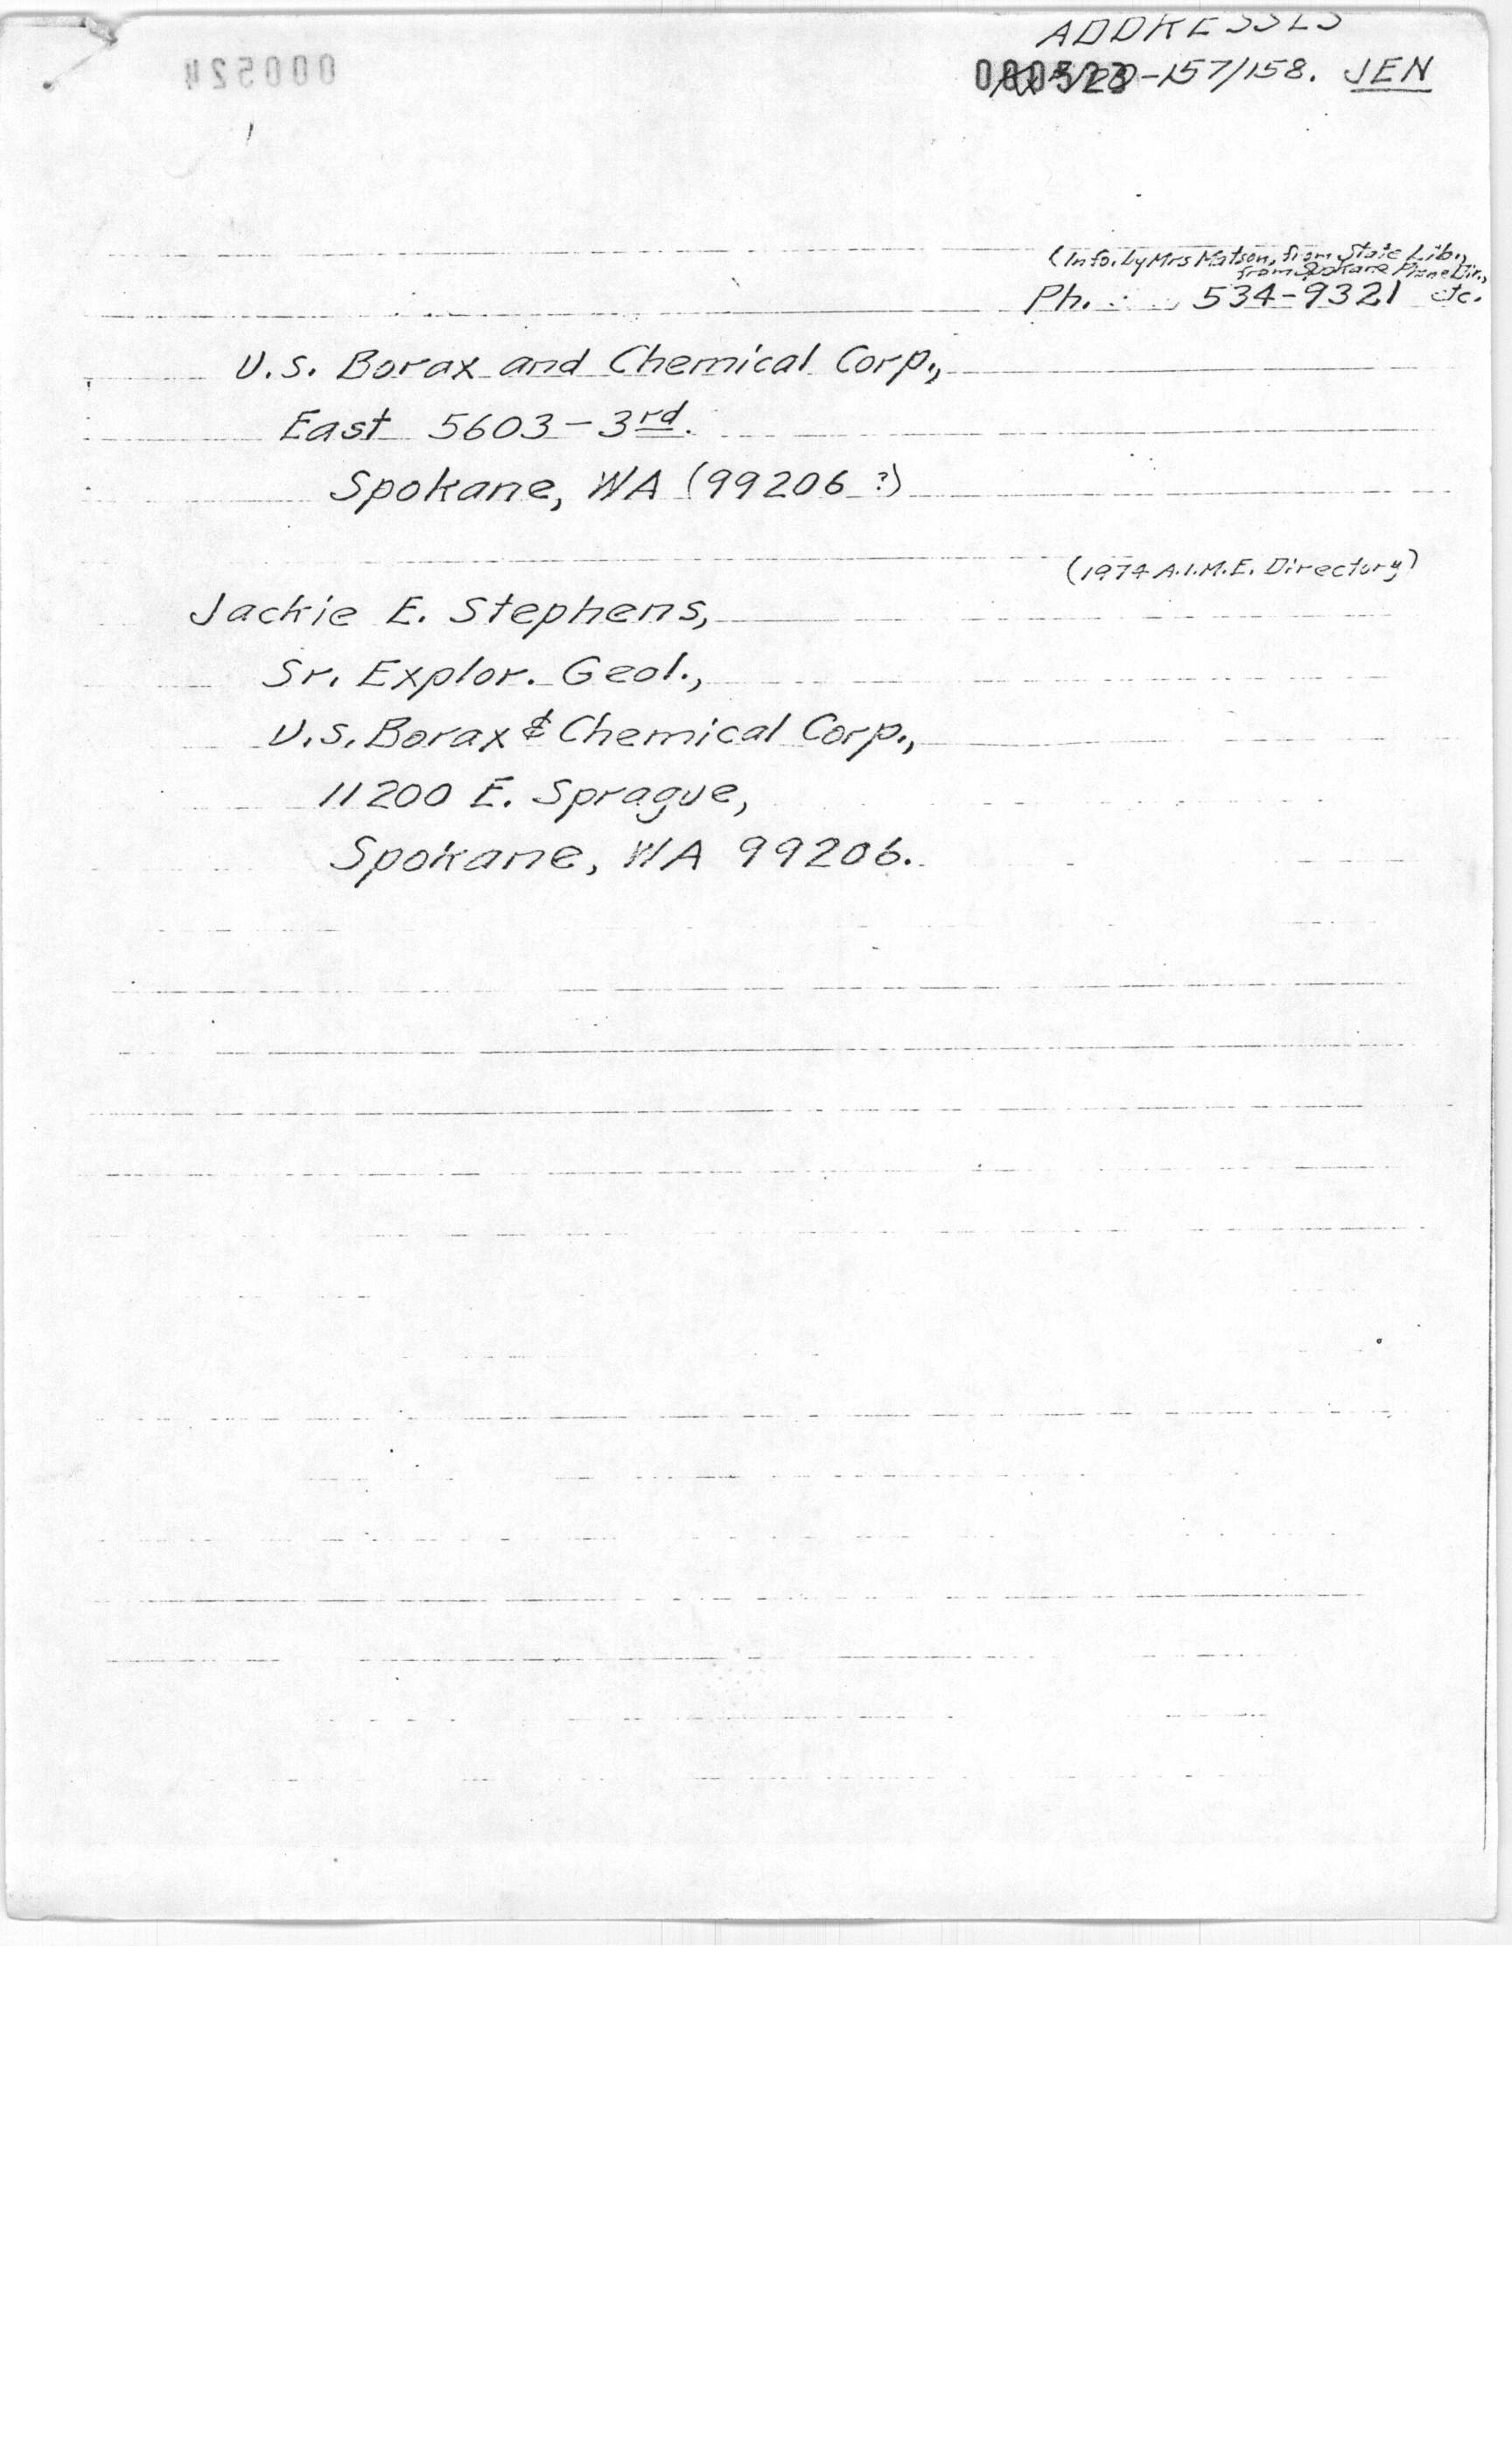 ADDRESSES
000523 -157/158. JEN
(Info. by Mrs Matson, from State Lib.,
from Spokane Phone Dir.,
Ph. : 534-9321 etc.
U.S. Borax and Chemical Corp.,
East 5603-3rd.
Spokane, WA (99206 ?)
(1974 A.I.M.E. Directory)
Jackie E. Stephens,
Sr. Explor. Geol.,
U.S. Borax & Chemical Corp.,
11200 E. Sprague,
Spokane, WA 99206.